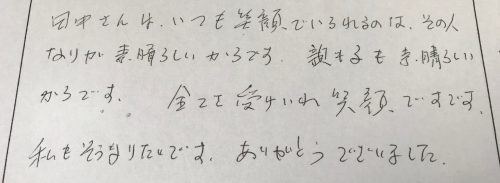 田中さんは、いつも笑顔でいられるのは、その人
なりが素晴らしいからです。親も子も素晴らしい
からです。全てを受けいれ笑顔ですです。
私もそうなりたいです。ありがとうでした